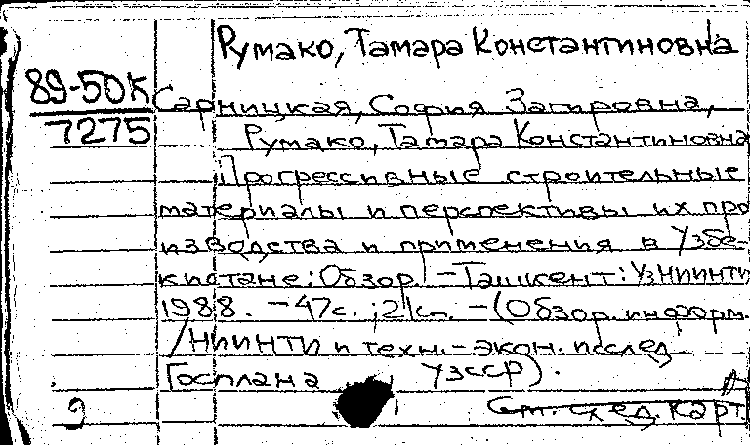 Румако, Тамара Константиновна
89-50К
7275
Сарницкая, София Загировна,
Румако, Тамара Константиновна
Прогрессивные строительные
материалы и перспективы их про
изводства и применения в Узбе-
кистане: Обзор. - Ташкент: УзНИИНТИ
1988. - 47с.; 21см. - (Обзор. информ.
/НИИНТИ и техн.-экон. исслед.
Госплана УзССР).
См. след. карт